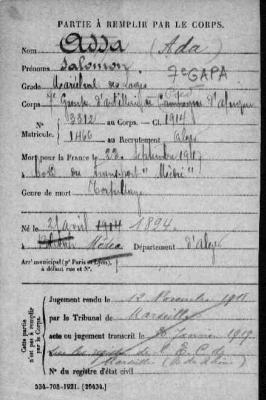 PARTIE À REMPLIR PAR LE CORPS.
Nom Adda (Ada)
Prénoms Salomon
7e GAPA
Grade Maréchal des logis
Corps 7e Groupe d'artillerie de Campagne d'Afrique
N° 3312 au Corps. — Cl. 1914
Matricule. 1466 au Recrutement Alger
Mort pour la France le 22 Septembre 1917
à bord du transport "Médie"
Genre de mort Torpillage
Né le 21 avril 1914 1894
à Médéa Département d'Alger
Arrt municipal (pr Paris et Lyon),
à défaut rue et N°.
Cette partie n'est pas à remplir par le Corps.
Jugement rendu le 12 Novembre 1918
par le Tribunal de Marseille
acte ou jugement transcrit le Janvier 1919
Marseille (B. du Rhône)
N° du registre d'état civil
534-708-1921. [26434.]